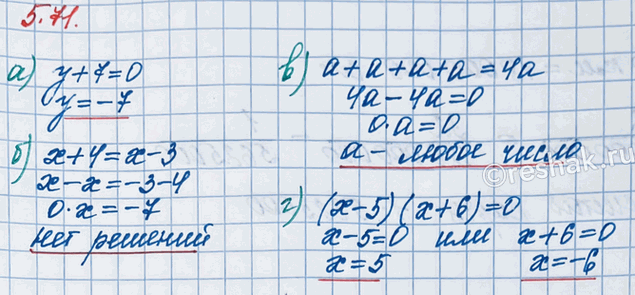 5.71.
а) y+7=0
y=-7
б) x+4=x-3
x-x=-3-4
0·x=-7
нет решений
в) a+a+a+a=4a
4a-4a=0
0·a=0
a- любое число
г) (x-5)(x+6)=0
x-5=0 или x+6=0
x=5 x=-6
reshak.ru